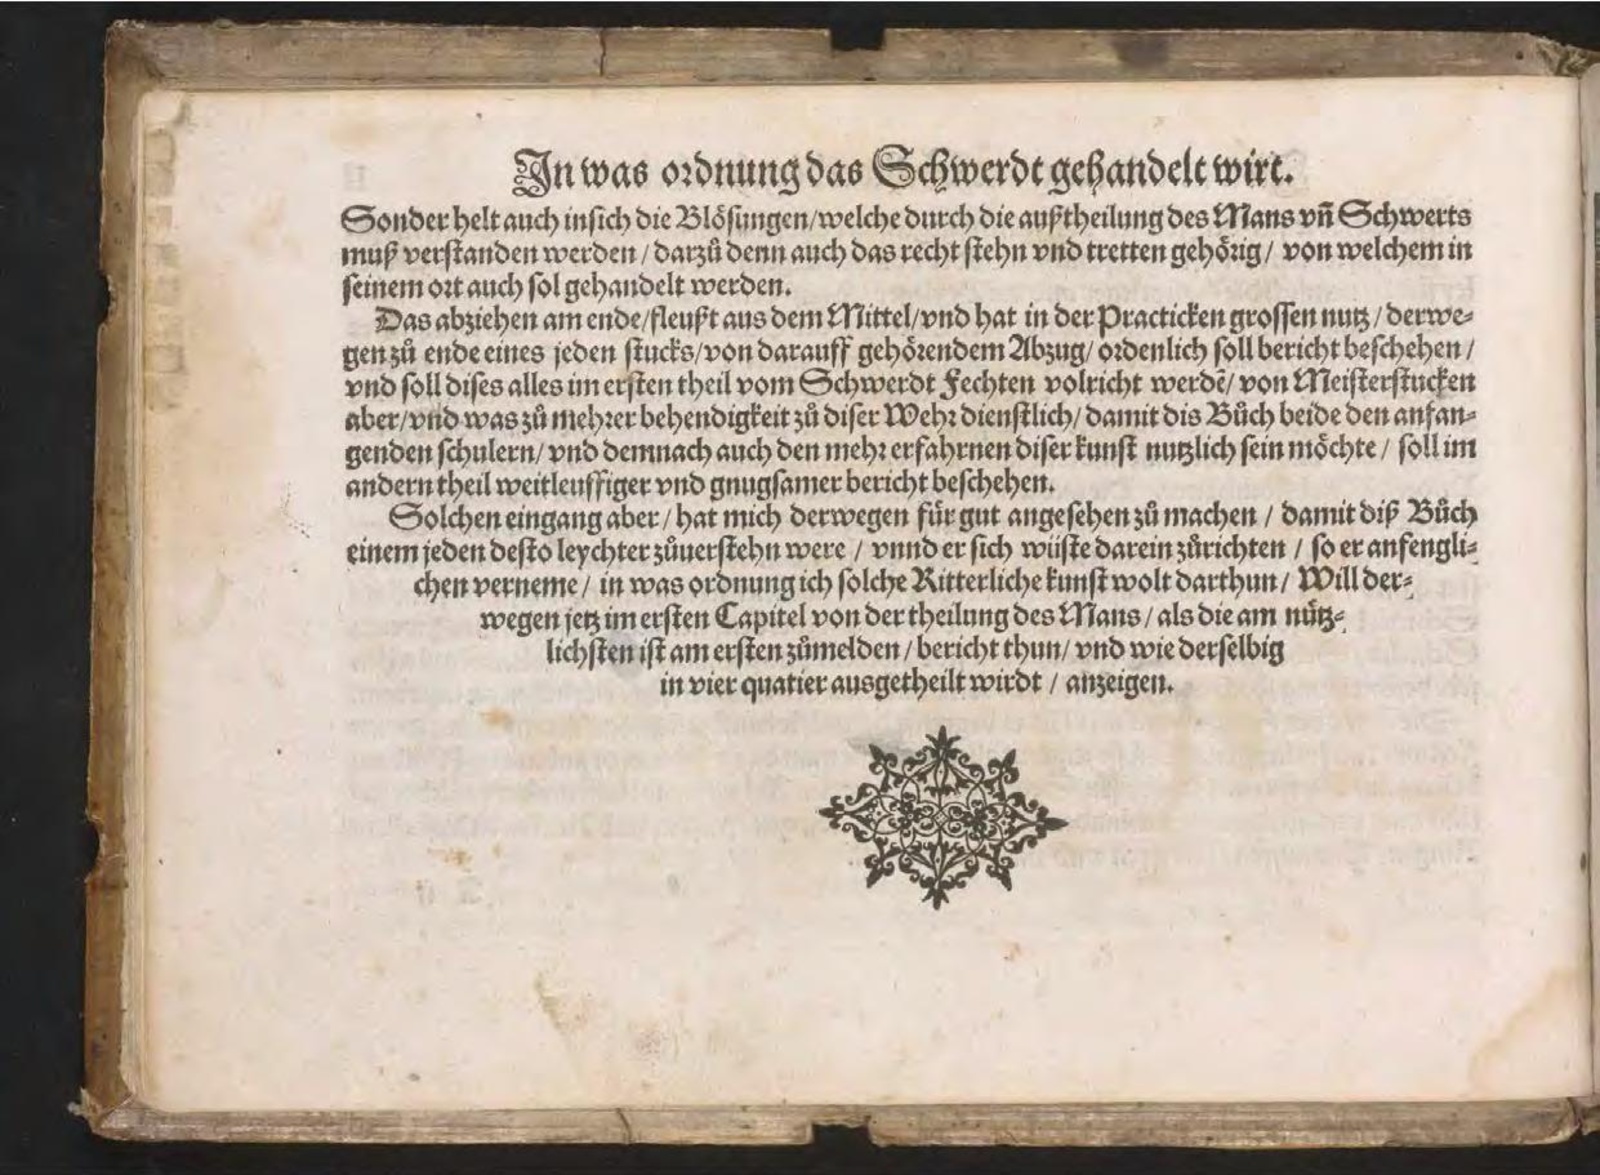 In was ordnung das Schwerdt gehandelt wirt.
Sonder helt auch in sich die Blösungen/welche durch die außtheilung des Mans vñ Schwerts
muß verstanden werden / darzů denn auch das recht stehn vnd tretten gehörig / von welchem in
seinem ort auch sol gehandelt werden.
Das abziehen am ende/fleußt aus dem Mittel/vnd hat in der Practicken grossen nutz / derwe-
gen zů ende eines jeden stucks/von darauff gehörendem Abzug/ ordenlich soll bericht beschehen /
vnd soll dises alles im ersten theil vom Schwerdt Fechten volricht werdē/ von Meisterstucken
aber/vnd was zů mehrer behendigkeit zů diser Wehr dienstlich/ damit dis Bůch beide den anfan-
genden schulern/ vnd demnach auch den mehr erfahrnen diser kunst nutzlich sein möchte / soll im
andern theil weitleuffiger vnd gnugsamer bericht beschehen.
Solchen eingang aber / hat mich derwegen für gut angesehen zů machen / damit diß Bůch
einem jeden desto leychter zůuerstehn were / vnnd er sich wüste darein zůrichten / so er anfengli-
chen verneme / in was ordnung ich solche Ritterliche kunst wolt darthun/ Will der-
wegen jetz im ersten Capitel von der theilung des Mans / als die am nütz-
lichsten ist am ersten zůmelden / bericht thun/ vnd wie derselbig
in vier quatier ausgetheilt wirdt / anzeigen.